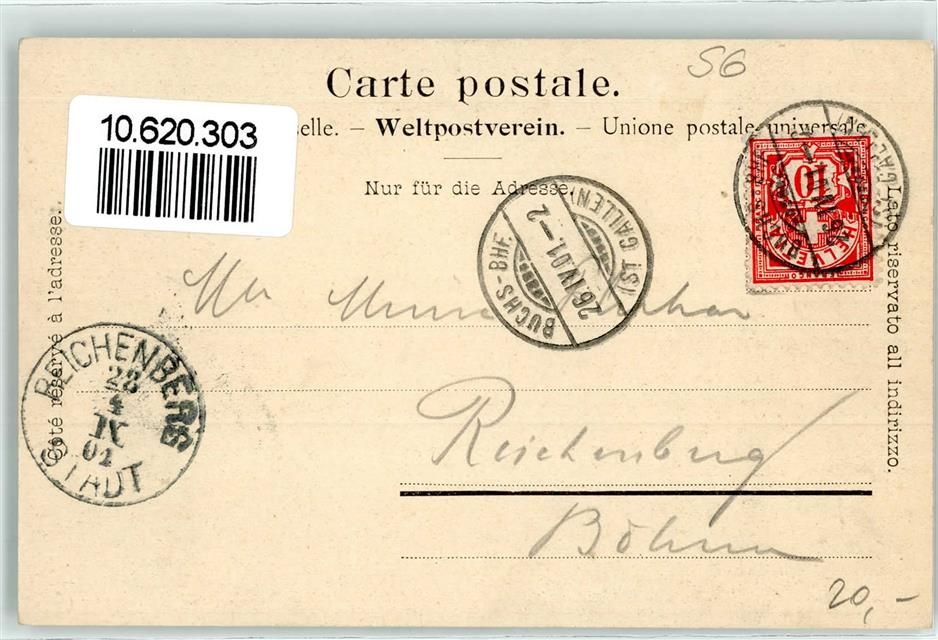 S6
Carte postale.
10.620.303
selle. – Weltpostverein. – Unione postale universale.
Nur für die Adresse.
Côté réservé à l'adresse.
Lato riservato all indirizzo.
BUCHS-BHF. (ST GALLEN)
26.IV.01.–2
10
HELVETIA
FRANCO
REICHENBERG
STADT
Reichenberg
Böhmen
20,-